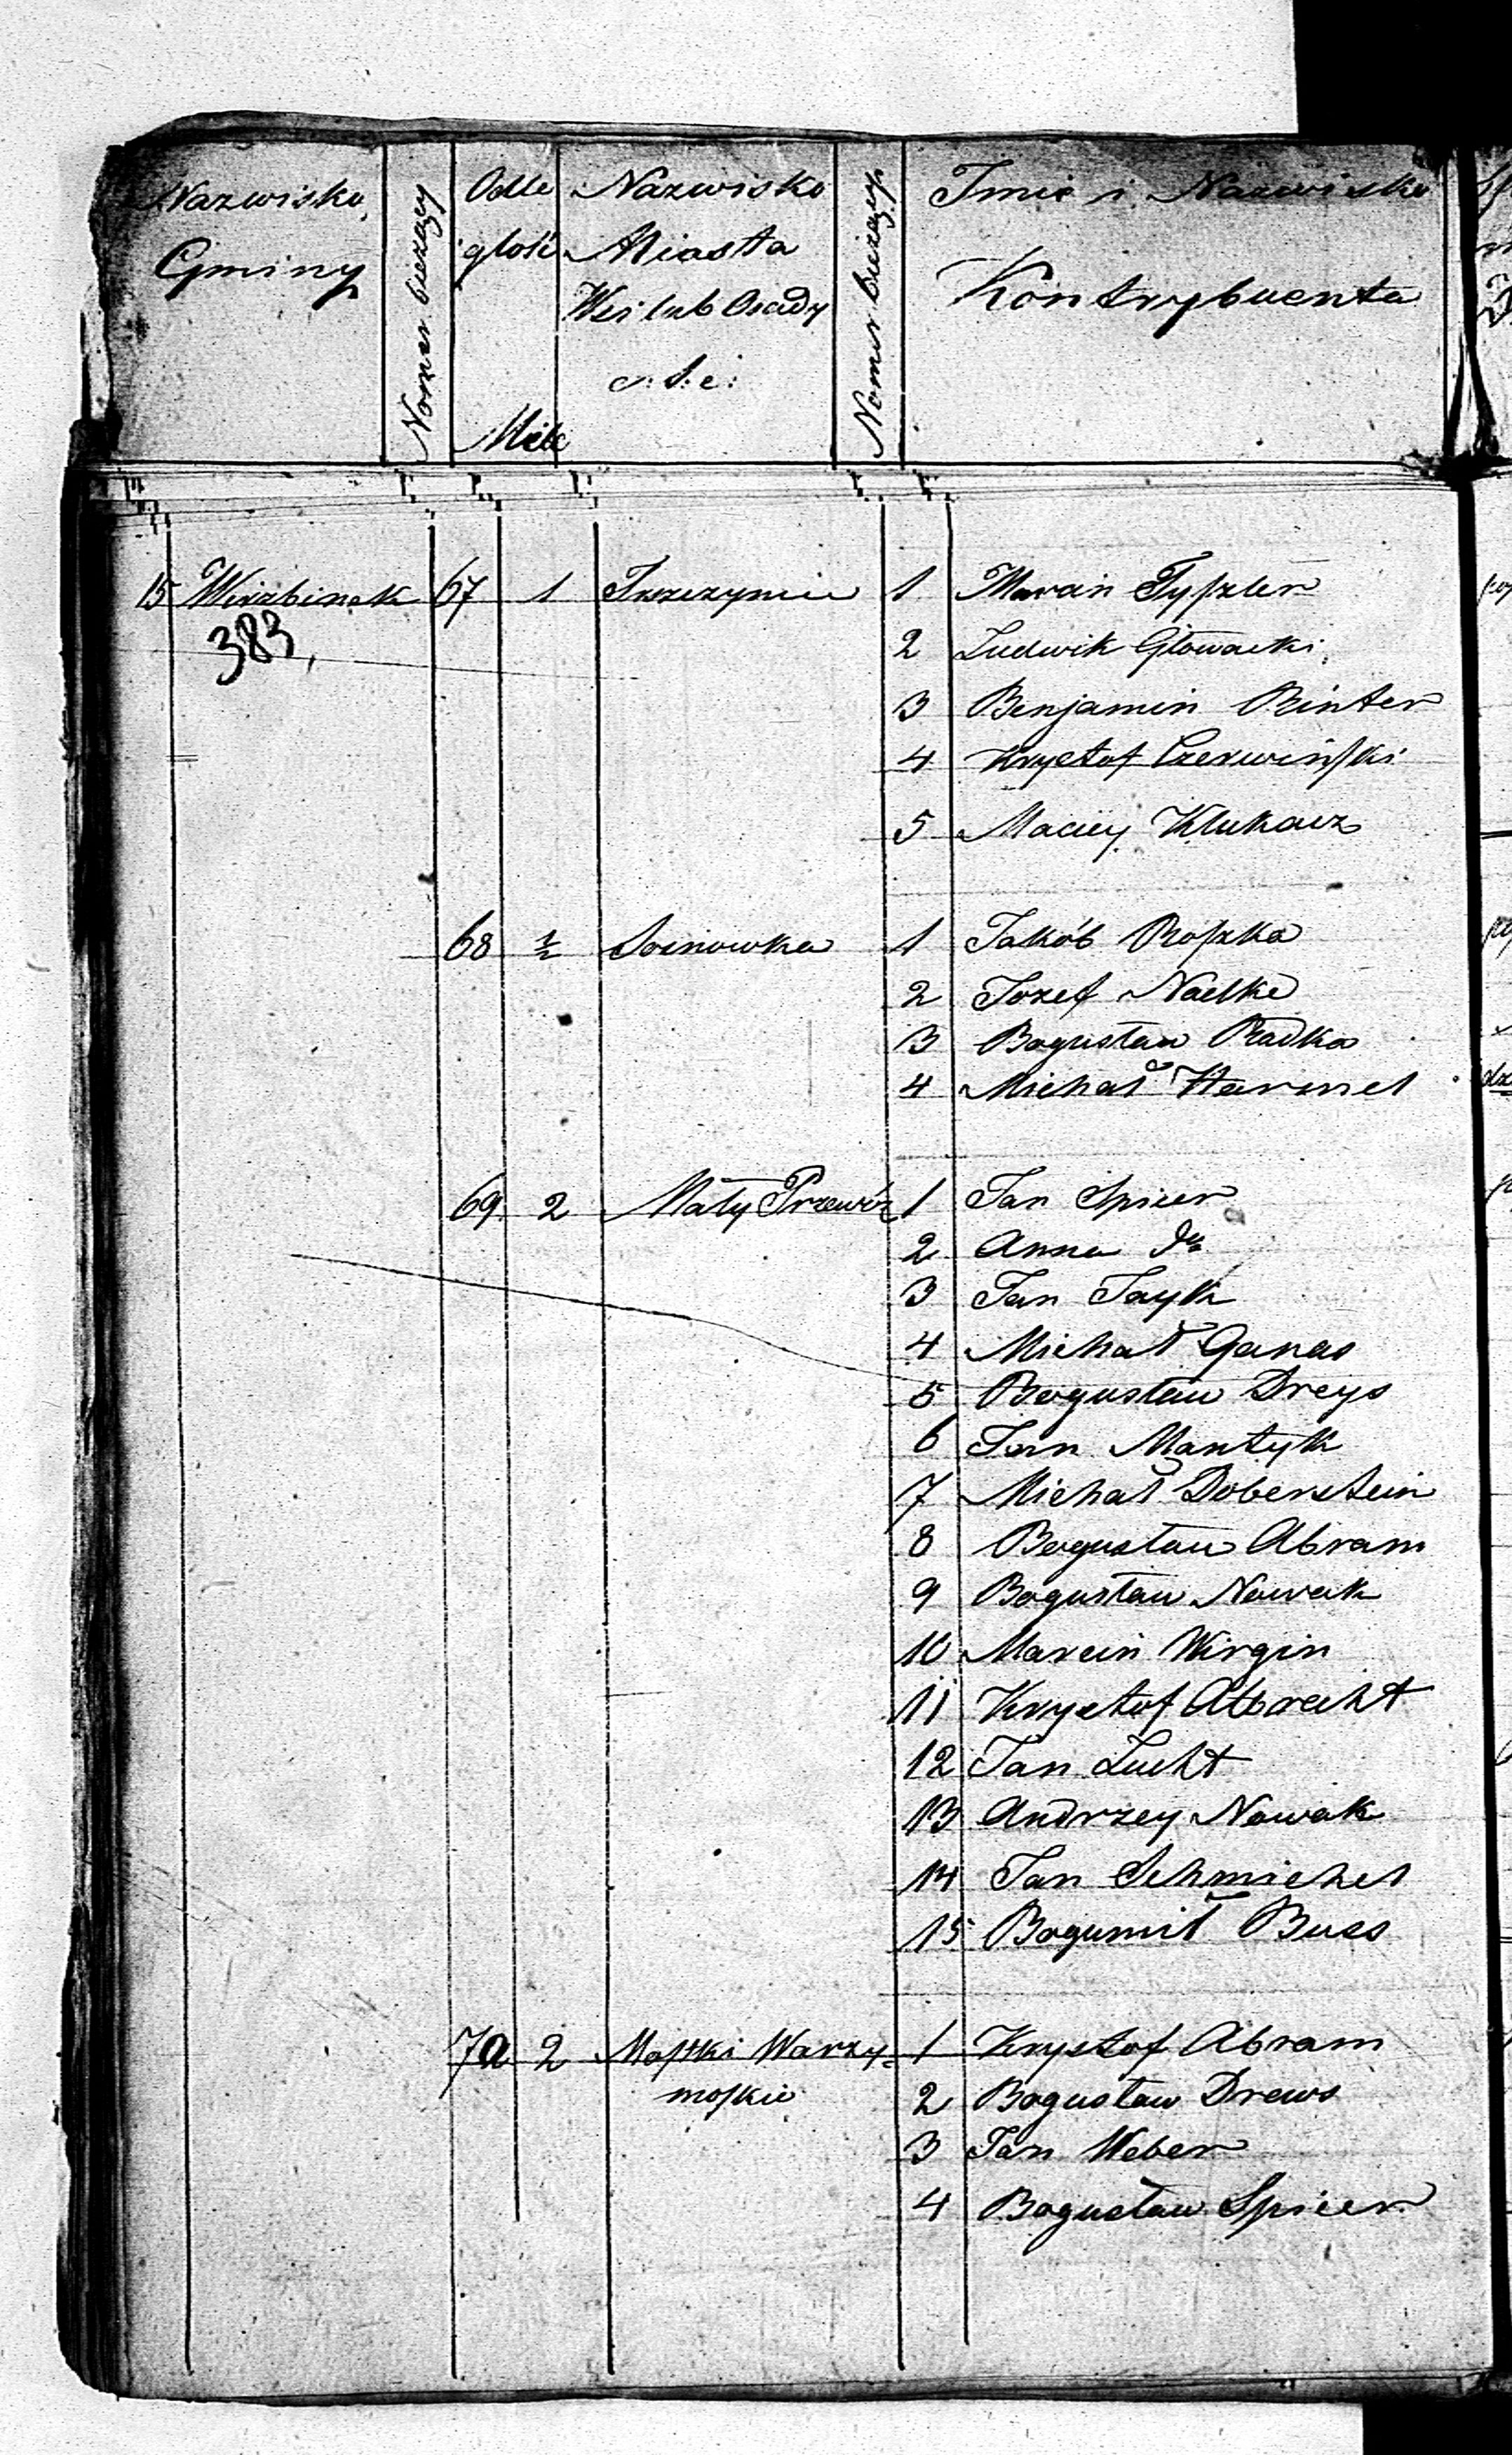 Nazwisko
Gminy
Numer bieżący
Odle
głość
Mile
Nazwisko
Miasta
Wsi lub Osady
Numer bieżący
Imie i Nazwisko
Kontrybuenta
15 Wierzbinek 67 1 1 Marcin Tyſzler
383
2 Ludwik Głowacki
3 Benjamin Rinter
4 Krysztof Czerwińſki
5 Maciey Klukacz
68 ½ Sosnowka 1 Jakób Roſzka
2 Jozef Naelke
3 Bogusław Radka
4 Michał Harmel
69 2 Mały Przewóz 1 Jan Spicer
2 Anna do
3 Jan Jayk
4 Michał Ganas
5 Bogusław Dreys
6 Jan Mantyk
7 Michał Doberstein
8 Bogusław Abram
9 Bogusław Nowak
10 Marcin Wirgin
11 Krysztof Albrecht
12 Jan Lucht
13 Andrzey Nowak
14 Jan Schmichel
15 Bogumił Buss
70 2 Moſtki Warzy- 1 Krysztof Abram
moſkie
2 Bogusław Drews
3 Jan Weber
4 Bogusław Spicer